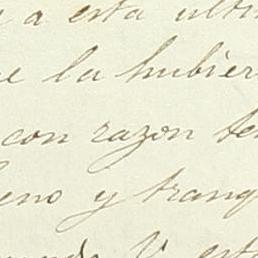 a esta ulti
e la hubier
con razon te
eno y tranq
V. est